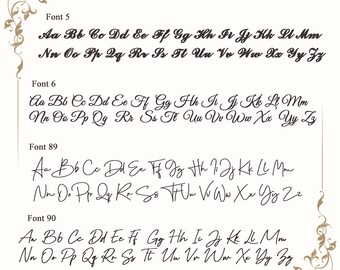 Font 5
Aa Bb Cc Dd Ee Ff Gg Hh Ii Jj Kk Ll Mm
Nn Oo Pp Qq Rr Ss Tt Uu Vv Ww Xx Yy Zz
Font 6
Aa Bb Cc Dd Ee Ff Gg Hh Ii Jj Kk Ll Mm
Nn Oo Pp Qq Rr Ss Tt Uu Vv Ww Xx Yy Zz
Font 89
Aa Bb Cc Dd Ee Ff Gg Hh Ii Jj Kk Ll Mm
Nn Oo Pp Qq Rr Ss Tt Uu Vv Ww Xx Yy Zz
Font 90
Aa Bb Cc Dd Ee Ff Gg Hh Ii Jj Kk Ll Mm
Nn Oo Pp Qq Rr Ss Tt Uu Vv Ww Xx Yy Zz